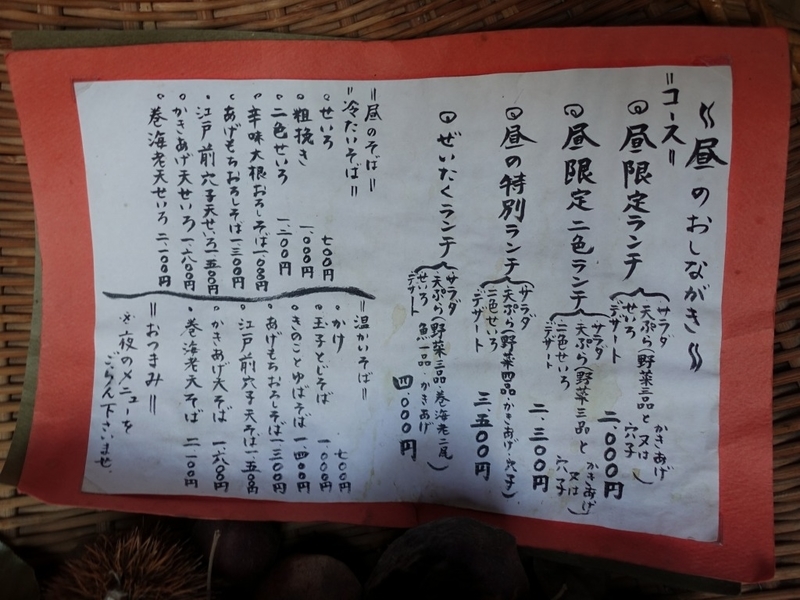 昼のおしながき
=コース=
◎昼限定ランチ
サラダ
天ぷら(野菜三品と又は かきあげ 穴子)
せいろ
デザート
二、000円
◎昼限定二色ランチ
サラダ
天ぷら(野菜三品と又は かきあげ 穴子)
二色せいろ
デザート
二、三00円
◎昼の特別ランチ
サラダ
天ぷら(野菜四品・かきあげ・穴子)
二色せいろ
デザート
三、五00円
◎ぜいたくランチ
サラダ
天ぷら(野菜三品・巻海老二尾)
せいろ 魚一品・かきあげ
デザート
四、000円
=昼のそば=
=冷たいそば=
・せいろ 七00円
・粗挽き 一、000円
・二色せいろ 一、二00円
・辛味大根おろしそば 一、一00円
・あげもちおろしそば 一、三00円
・江戸前穴子天せいろ 一、五00円
・かきあげ天せいろ 一、六00円
・巻海老天せいろ 二、一00円
=温かいそば=
・かけ 七00円
・玉子とじそば 一、000円
・きのことゆばそば 一、四00円
・あげもちおろしそば 一、三00円
・江戸前穴子天そば 一、五00円
・かきあげ天そば 一、六00円
・巻海老天そば 二、一00円
=おつまみ=
※夜のメニューを
ごらん下さいませ.